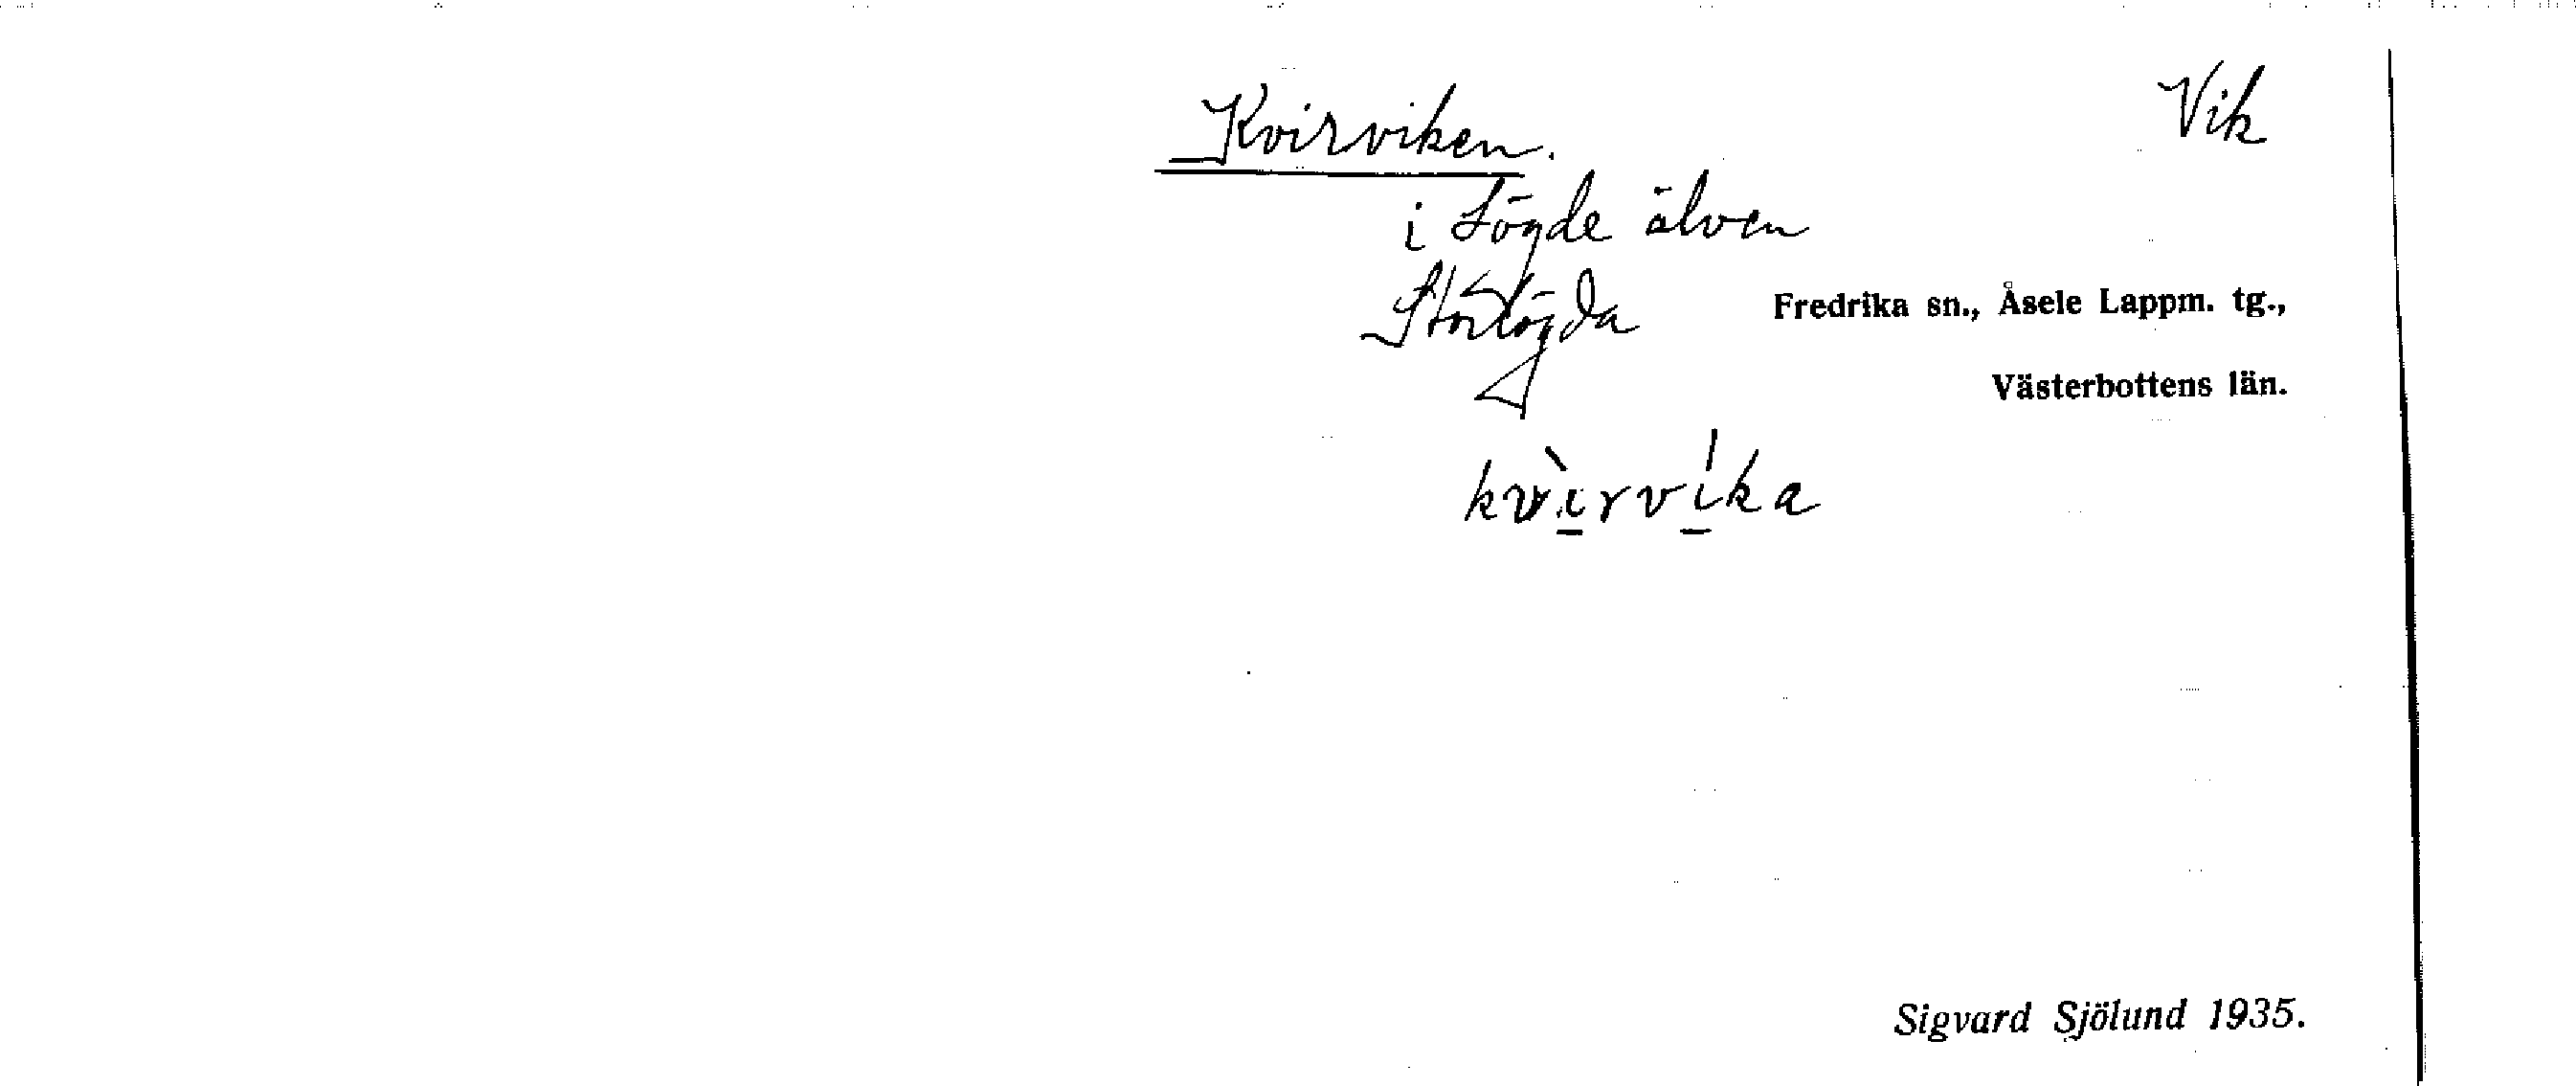 Kvirviken. Vik
i Lögde älven
Storlögda Fredrika sn., Åsele Lappm. tg.,
Västerbottens län.
kv̀i̱rví̱ka
Sigvard Sjölund 1935.